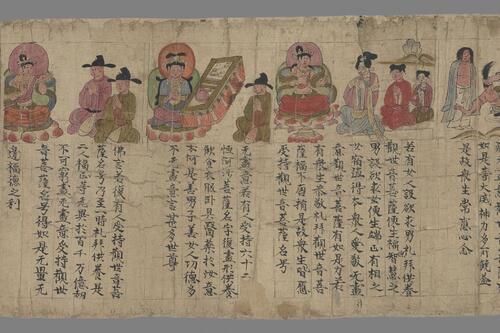 如是等大威神力多所饒益
是故衆生常應心念
若有女人設欲求男礼拜供養
觀世音菩薩便生福智慧之
男設欲求女便生端正有相之
女宿植德本衆人愛敬无盡
意觀世音菩薩有如是力若
有衆生恭敬礼拜觀世音菩
薩福不唐捐是故衆生皆應
受持觀世音菩薩名号
无盡意若有人受持六十二
億恒河沙菩薩名字復盡形供養
飲食衣服卧具醫藥於汝意
云何是善男子善女人功德多
不无盡意言甚多世尊
佛言若復有人受持觀世音菩
薩名号乃至一時礼拜供養是
二人福正等无異於百千万億劫
不可窮盡无盡意受持觀世
音菩薩名号得如是无量无
邊福德之利